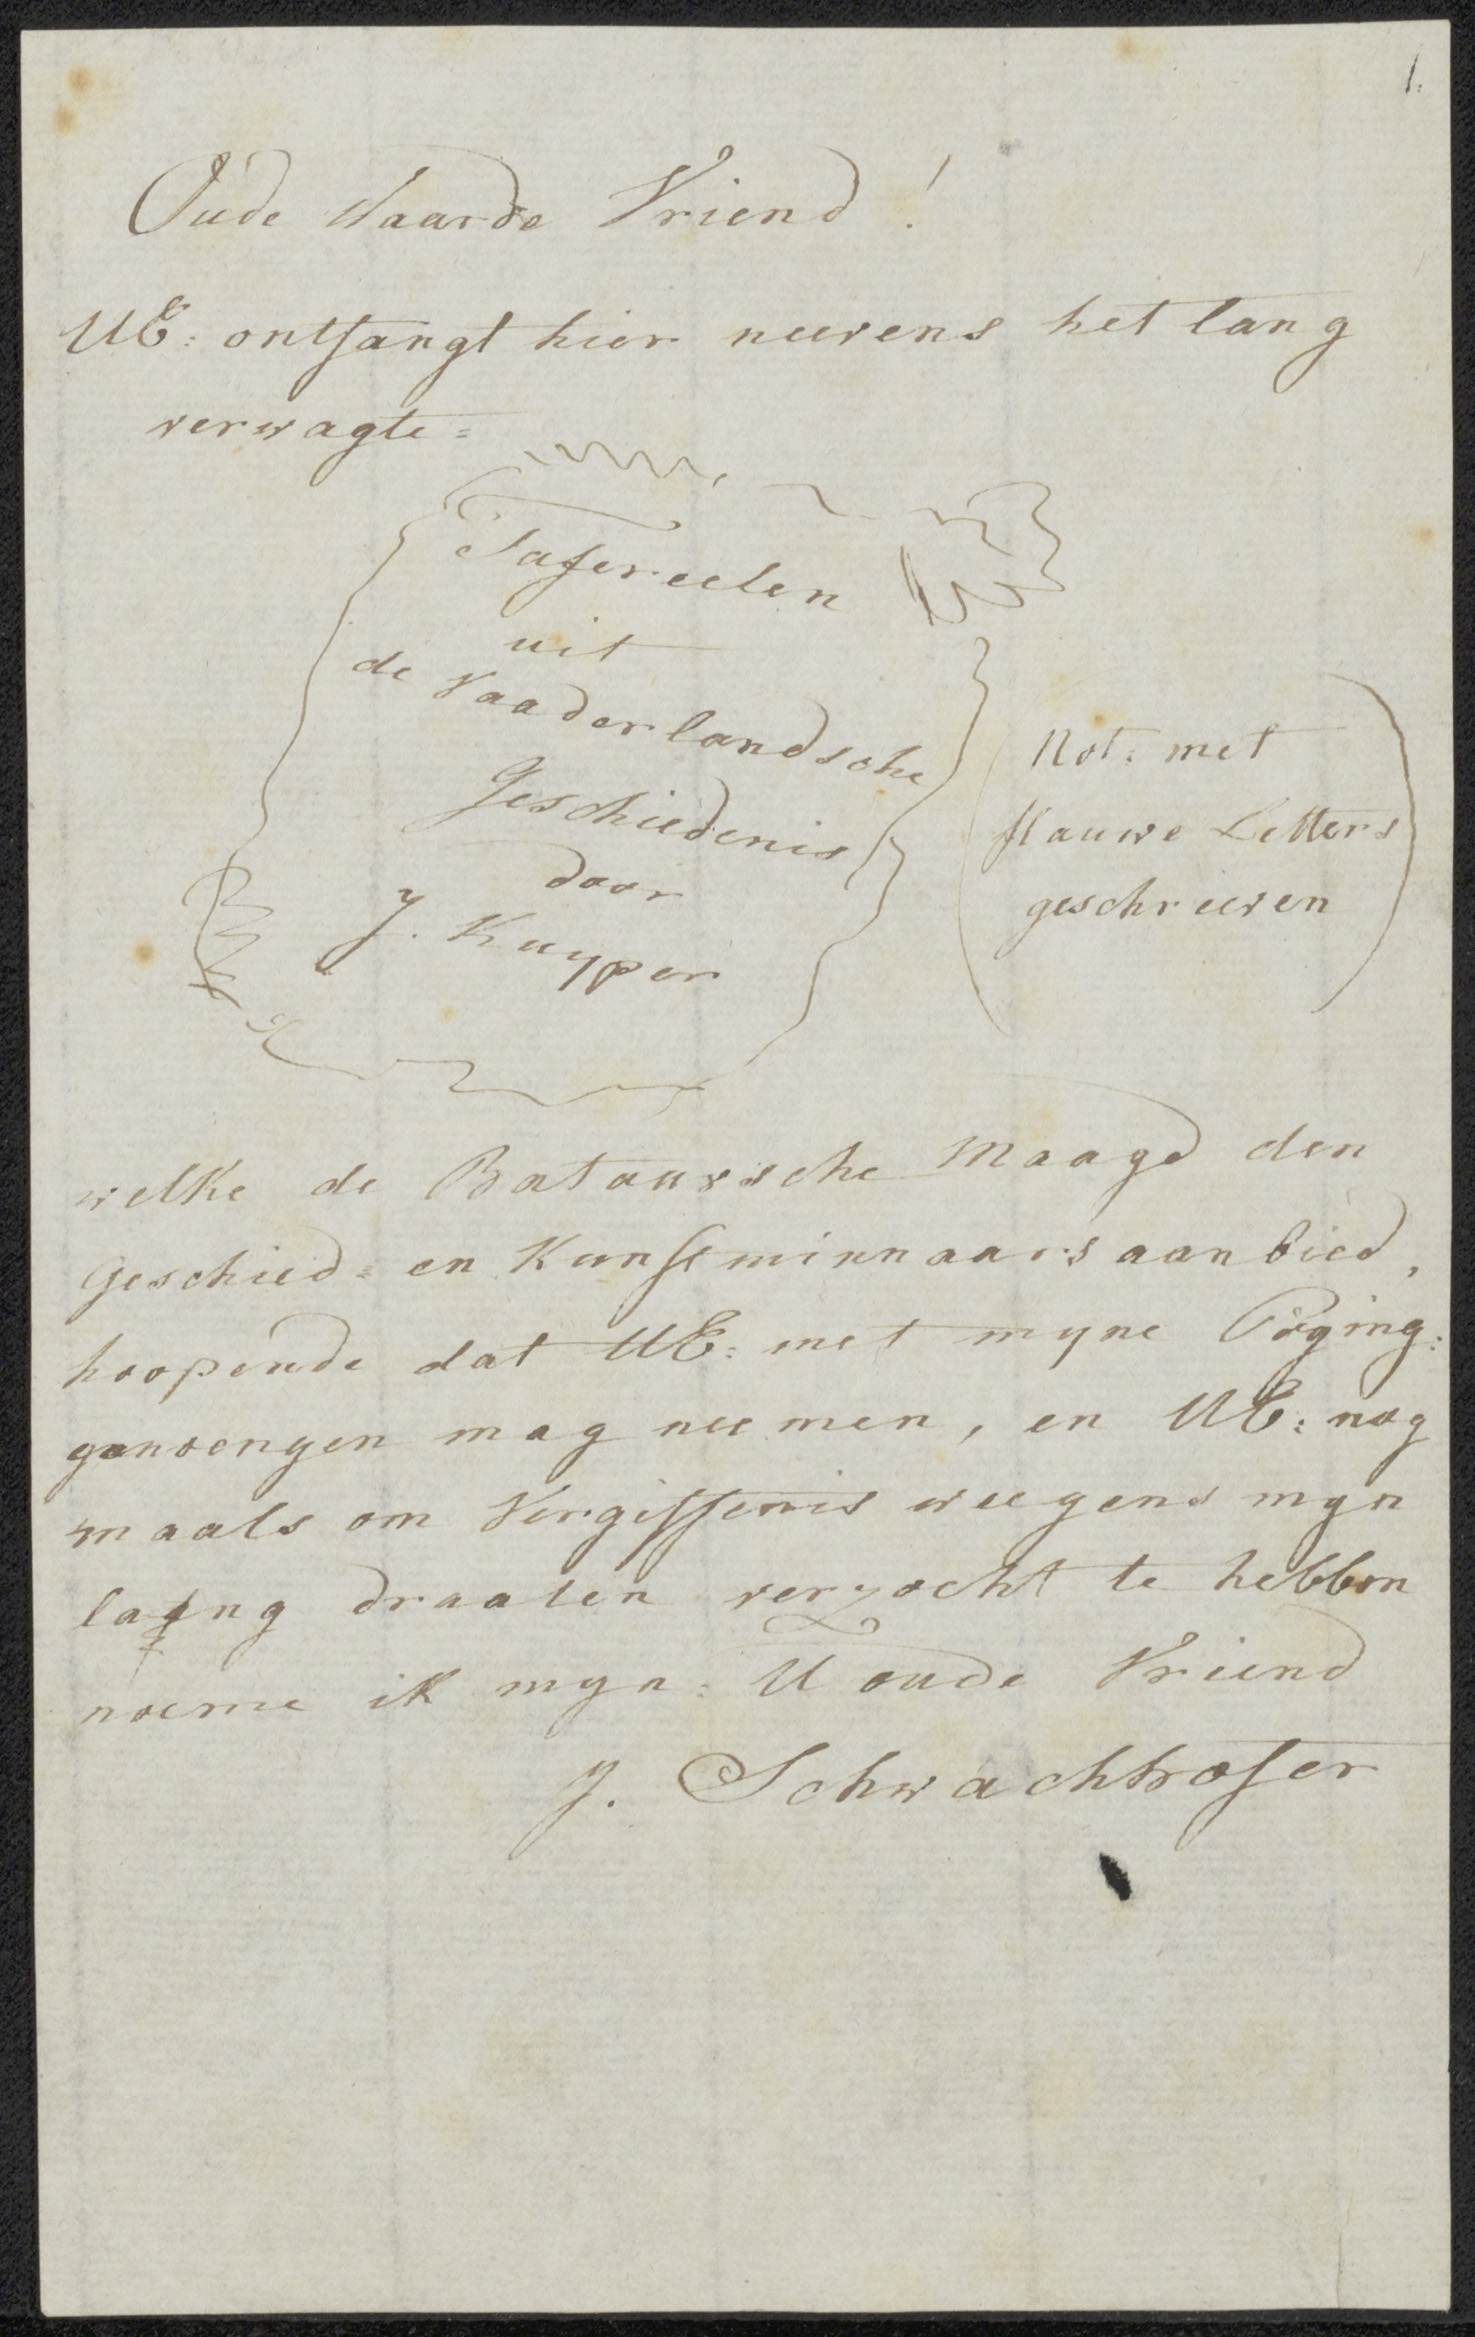 1.
Oude Waarde Vriend!
UE: ontfangt hier neevens het lang
verwagte=
Tafereelen
uit
de Vaaderlandsche
Geschiedenis
door
J. Kuyper
Not: met
flauwe Letters
geschreeven
welke de Bataavsche Maagd den
Geschied= en Kunstminnaars aanbied,
hoopende dat UE: met myne Pöging:
genoengen mag neemen, en UE: nog
maals om Vergiffenis weegens myn
laang draalen verzocht te hebben
noeme ik myn: U oude Vriend
J. Schwachhofer